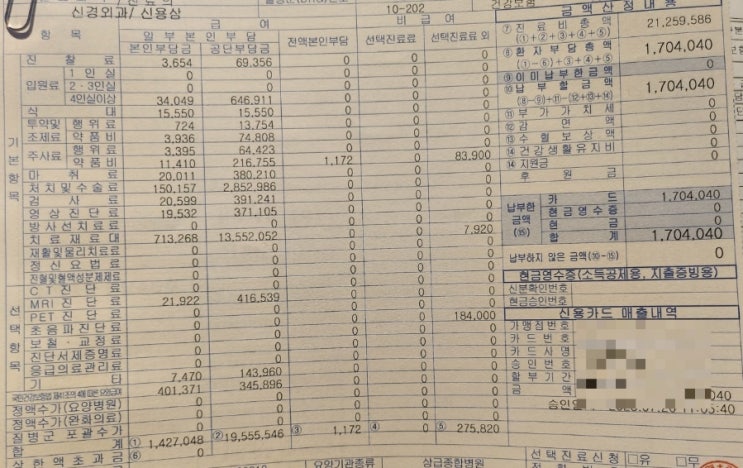 신경외과/신용상
10-202
건강보험
금 액 산 정 내 용
항 목
급 여
비 급 여
일 부 본 인 부 담
본인부담금 공단부담금 전액본인부담 선택진료료 선택진료료 외
진 찰 료 3,654 69,356 0 0 0
입원료 1 인 실 0 0 0 0 0
2·3인실 0 0 0 0 0
4인실이상 34,049 646,911 0 0 0
식 대 15,550 15,550 0 0 0
투약및 행 위 료 724 13,754 0 0 0
조제료 약 품 비 3,936 74,808 0 0 0
주사료 행 위 료 3,395 64,423 0 0 0
약 품 비 11,410 216,755 1,172 0 83,900
마 취 료 20,011 380,210 0 0 0
처 치 및 수 술 료 150,157 2,852,986 0 0 0
검 사 료 20,599 391,241 0 0 0
영 상 진 단 료 19,532 371,105 0 0 0
방 사 선 치 료 료 0 0 0 0 0
치 료 재 료 대 713,268 13,552,052 0 0 7,920
재활및물리치료료 0 0 0 0 0
정 신 요 법 료 0 0 0 0 0
전혈및혈액성분제제료 0 0 0 0 0
C T 진 단 료 0 0 0 0 0
MRI 진 단 료 21,922 416,539 0 0 0
PET 진 단 료 0 0 0 0 184,000
초 음 파 진 단 료 0 0 0 0 0
보 철 · 교 정 료 0 0 0 0 0
진단서제증명료 0 0 0 0 0
응급의료관리료
기 타 7,470 143,960
401,371 345,896
정액수가(요양병원) 0 0 0 0 0
정액수가(완화의료) 0 0 0 0 0
질 병 군 포 괄 수 가 0 0 0 0 0
합 계 ① 1,427,048 ② 19,555,546 ③ 1,172 ④ 0 ⑤ 275,820
상 한 액 초 과 금 ⑥ 0
기 본 항 목
선 택 항 목
⑦ 진 료 비 총 액 21,259,586
(①+②+③+④+⑤)
⑧ 환 자 부 담 총 액 1,704,040
(①-⑥)+③+④+⑤
⑨ 이 미 납 부 한 금 액 0
⑩ 납 부 할 금 액 1,704,040
(⑧-⑨)+⑪-⑫+⑬+⑭
⑪ 부 가 가 치 세 0
⑫ 감 면 액 0
⑬ 수 혈 보 상 액 0
⑭ 건 강 생 활 유 지 비 0
⑭ 지원금 0
후 원 금
납부한 금액 (⑮)
카 드 1,704,040
현 금 영 수 증 0
현 금 0
합 계 1,704,040
납부하지 않은 금액(⑩-⑮) 0
현금영수증(소득공제용, 지출증빙용)
신분확인번호
현금승인번호
신용카드 매출내역
가 맹 점 번 호
카 드 번 호
카 드 사 명
승 인 번 호
할 부 기 간
금 액
040
승인
11:03:40
요양기관종류 상급종합병원
선 택 진 료 신 청 □유 □무